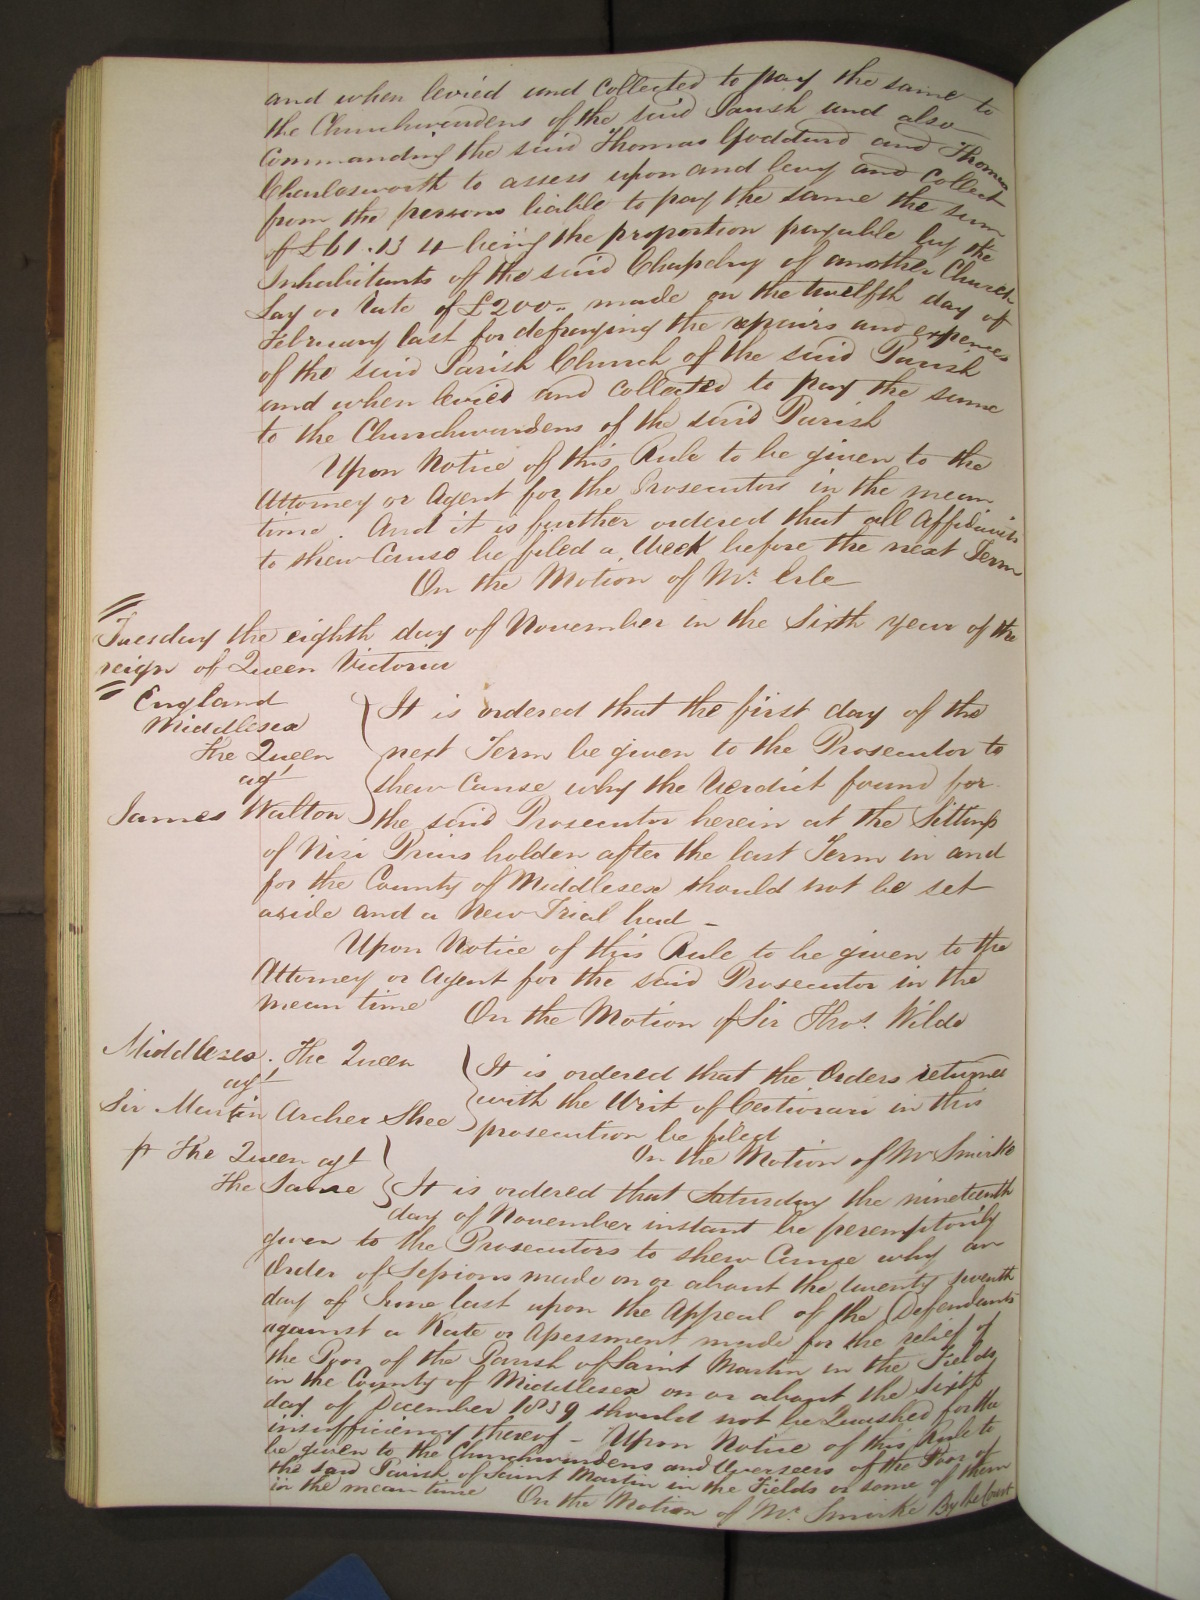 and when levied and collected to pay the same to
the Churchwardens of the said Parish and also
Commanding the said Thomas Goddard and Thomas
Charlesworth to assess upon and levy and collect
from the persons liable to pay the same the sum
of £61.13 4 being the proportion payable by the
Inhabitants of the said Chapelry of another Church
Lay or rate of £200 - made on the twelfth day of
February last for defraying the repairs and expences
of the said Parish Church of the said Parish
and when levied and collected to pay the same
to the Churchwardens of the said Parish
Upon Notice of this Rule to be given to the
Attorney or Agent for the Prosecutors in the mean
time. And it is further ordered that all Affidavits
to shew Cause be filed a Week before the next Term
On the Motion of Mr. Erle
Tuesday the eighth day of November in the Sixth year of the
reign of Queen Victoria
England
Middlesex
The Queen
agt
James Walton
It is ordered that the first day of the
next Term be given to the Prosecutor to
shew Cause why the Verdict found for
the said Prosecutor herein at the Sittings
of Nisi Prius holden after the last Term in and
for the County of Middlesex should not be set
aside and a New Trial had -
Upon Notice of this Rule to be given to the
Attorney or Agent for the said Prosecutor in the
mean time
On the Motion of Sir Thos. Wilde
Middlesex. The Queen
agt
Sir Martin Archer Shee
It is ordered that the Orders returned
with the Writ of Certiorari in this
prosecution be filed
On the Motion of Mr Smirke
The Queen agt
The Same
It is ordered that Saturday the nineteenth
day of November instant be peremptorily
given to the Prosecutors to shew Cause why an
Order of Sessions made on or about the twenty seventh
day of June last upon the Appeal of the Defendants
against a Rate or Assessment made for the relief of
the Poor of the Parish of Saint Martin in the Fields
in the County of Middlesex on or about the sixth
day of December 1839 should not be Quashed for the
insufficiency thereof - Upon Notice of this Rule to
be given to the Churchwardens and Overseers of the Poor of
the said Parish of Saint Martin in the Fields or some of them
in the mean time On the Motion of Mr. Smirke By the Court